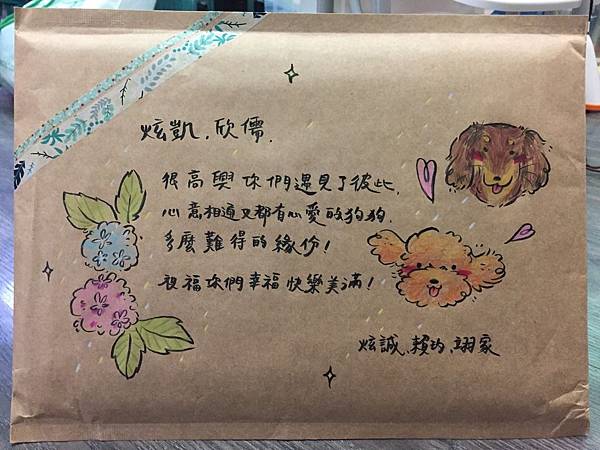 炫凱.欣儒.
很高興你們遇見了彼此.
心意相通又都有心愛的狗狗.
多麼難得的緣份!
祝福你們幸福快樂美滿!
炫誠、賴均、翊家